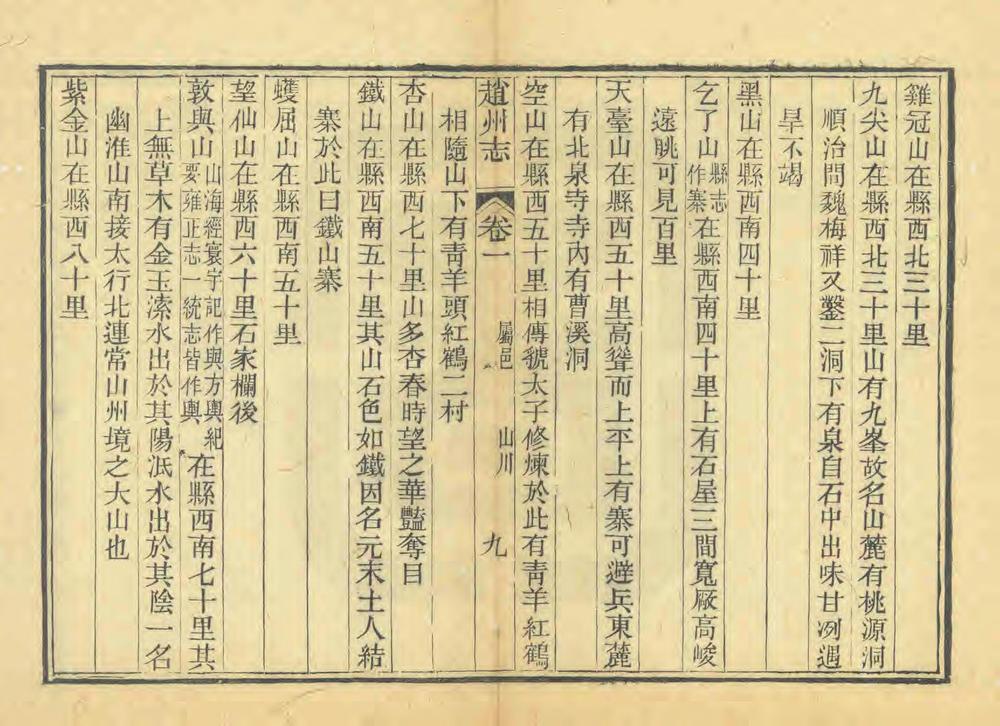 雞冠山在縣西北三十里
九尖山在縣西北三十里山有九峯故名山麓有桃源洞
順治間魏梅祥又鑿二洞下有泉自石中出味甘冽遇
旱不竭
黑山在縣西南四十里
乞了山縣志作寨在縣西南四十里上有石屋三間寬厰高峻
遠眺可見百里
天臺山在縣西五十里高聳而上平上有寨可避兵東麓
有北泉寺寺內有曹溪洞
空山在縣西五十里相傳虢太子修煉於此有靑羊紅鶴
趙州志 卷一 屬邑 山川 九
相隨山下有靑羊頭紅鶴二村
杏山在縣西七十里山多杏春時望之華豔奪目
鐵山在縣西南五十里其山石色如鐵因名元末土人結
寨於此曰鐵山寨
蠖屈山在縣西南五十里
望仙山在縣西六十里石家欄後
敦與山山海經寰宇記作與方輿紀要雍正志一統志皆作輿在縣西南七十里其
上無草木有金玉溹水出於其陽泜水出於其陰一名
幽淮山南接太行北連常山州境之大山也
紫金山在縣西八十里